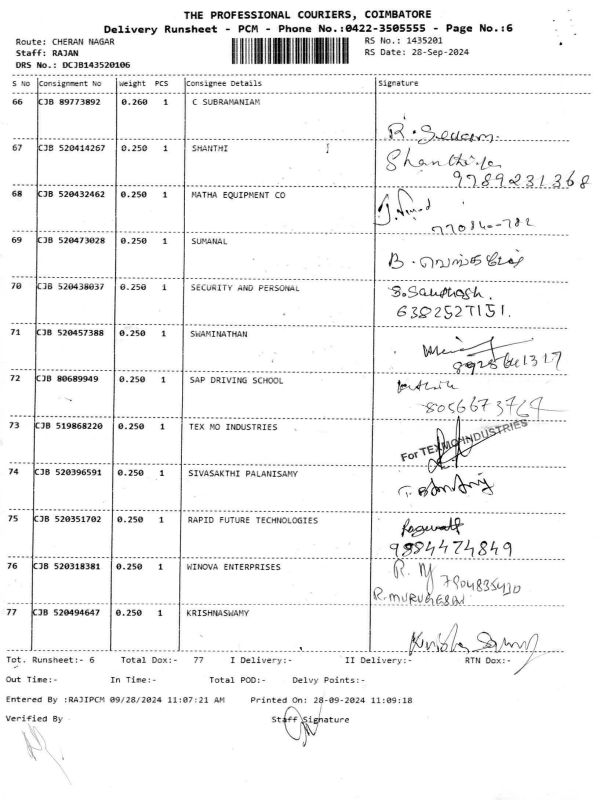 THE PROFESSIONAL COURIERS, COIMBATORE
Delivery Runsheet - PCM - Phone No.:0422-3505555 - Page No.:6
Route: CHERAN NAGAR RS No.: 1435201
Staff: RAJAN RS Date: 28-Sep-2024
DRS No.: DCJB143520106
S No Consignment No Weight PCS Consignee Details Signature
66 CJB 89773892 0.260 1 C SUBRAMANIAM
67 CJB 520414267 0.250 1 SHANTHI
9789231368
68 CJB 520432462 0.250 1 MATHA EQUIPMENT CO
69 CJB 520473028 0.250 1 SUMANAL
B.
70 CJB 520438037 0.250 1 SECURITY AND PERSONAL S. Santhosh.
6382527151.
71 CJB 520457388 0.250 1 SWAMINATHAN
72 CJB 80689949 0.250 1 SAP DRIVING SCHOOL
8056673764
73 CJB 519868220 0.250 1 TEX MO INDUSTRIES
For TEXMO INDUSTRIES
74 CJB 520396591 0.250 1 SIVASAKTHI PALANISAMY
75 CJB 520351702 0.250 1 RAPID FUTURE TECHNOLOGIES
9984474849
76 CJB 520318381 0.250 1 WINOVA ENTERPRISES
R. MURUGESAN
77 CJB 520494647 0.250 1 KRISHNASWAMY
Tot. Runsheet:- 6 Total Dox:- 77 I Delivery:- II Delivery:- RTN Dox:-
Out Time:- In Time:- Total POD:- Delvy Points:-
Entered By :RAJIPCM 09/28/2024 11:07:21 AM Printed On: 28-09-2024 11:09:18
Verified By Staff Signature